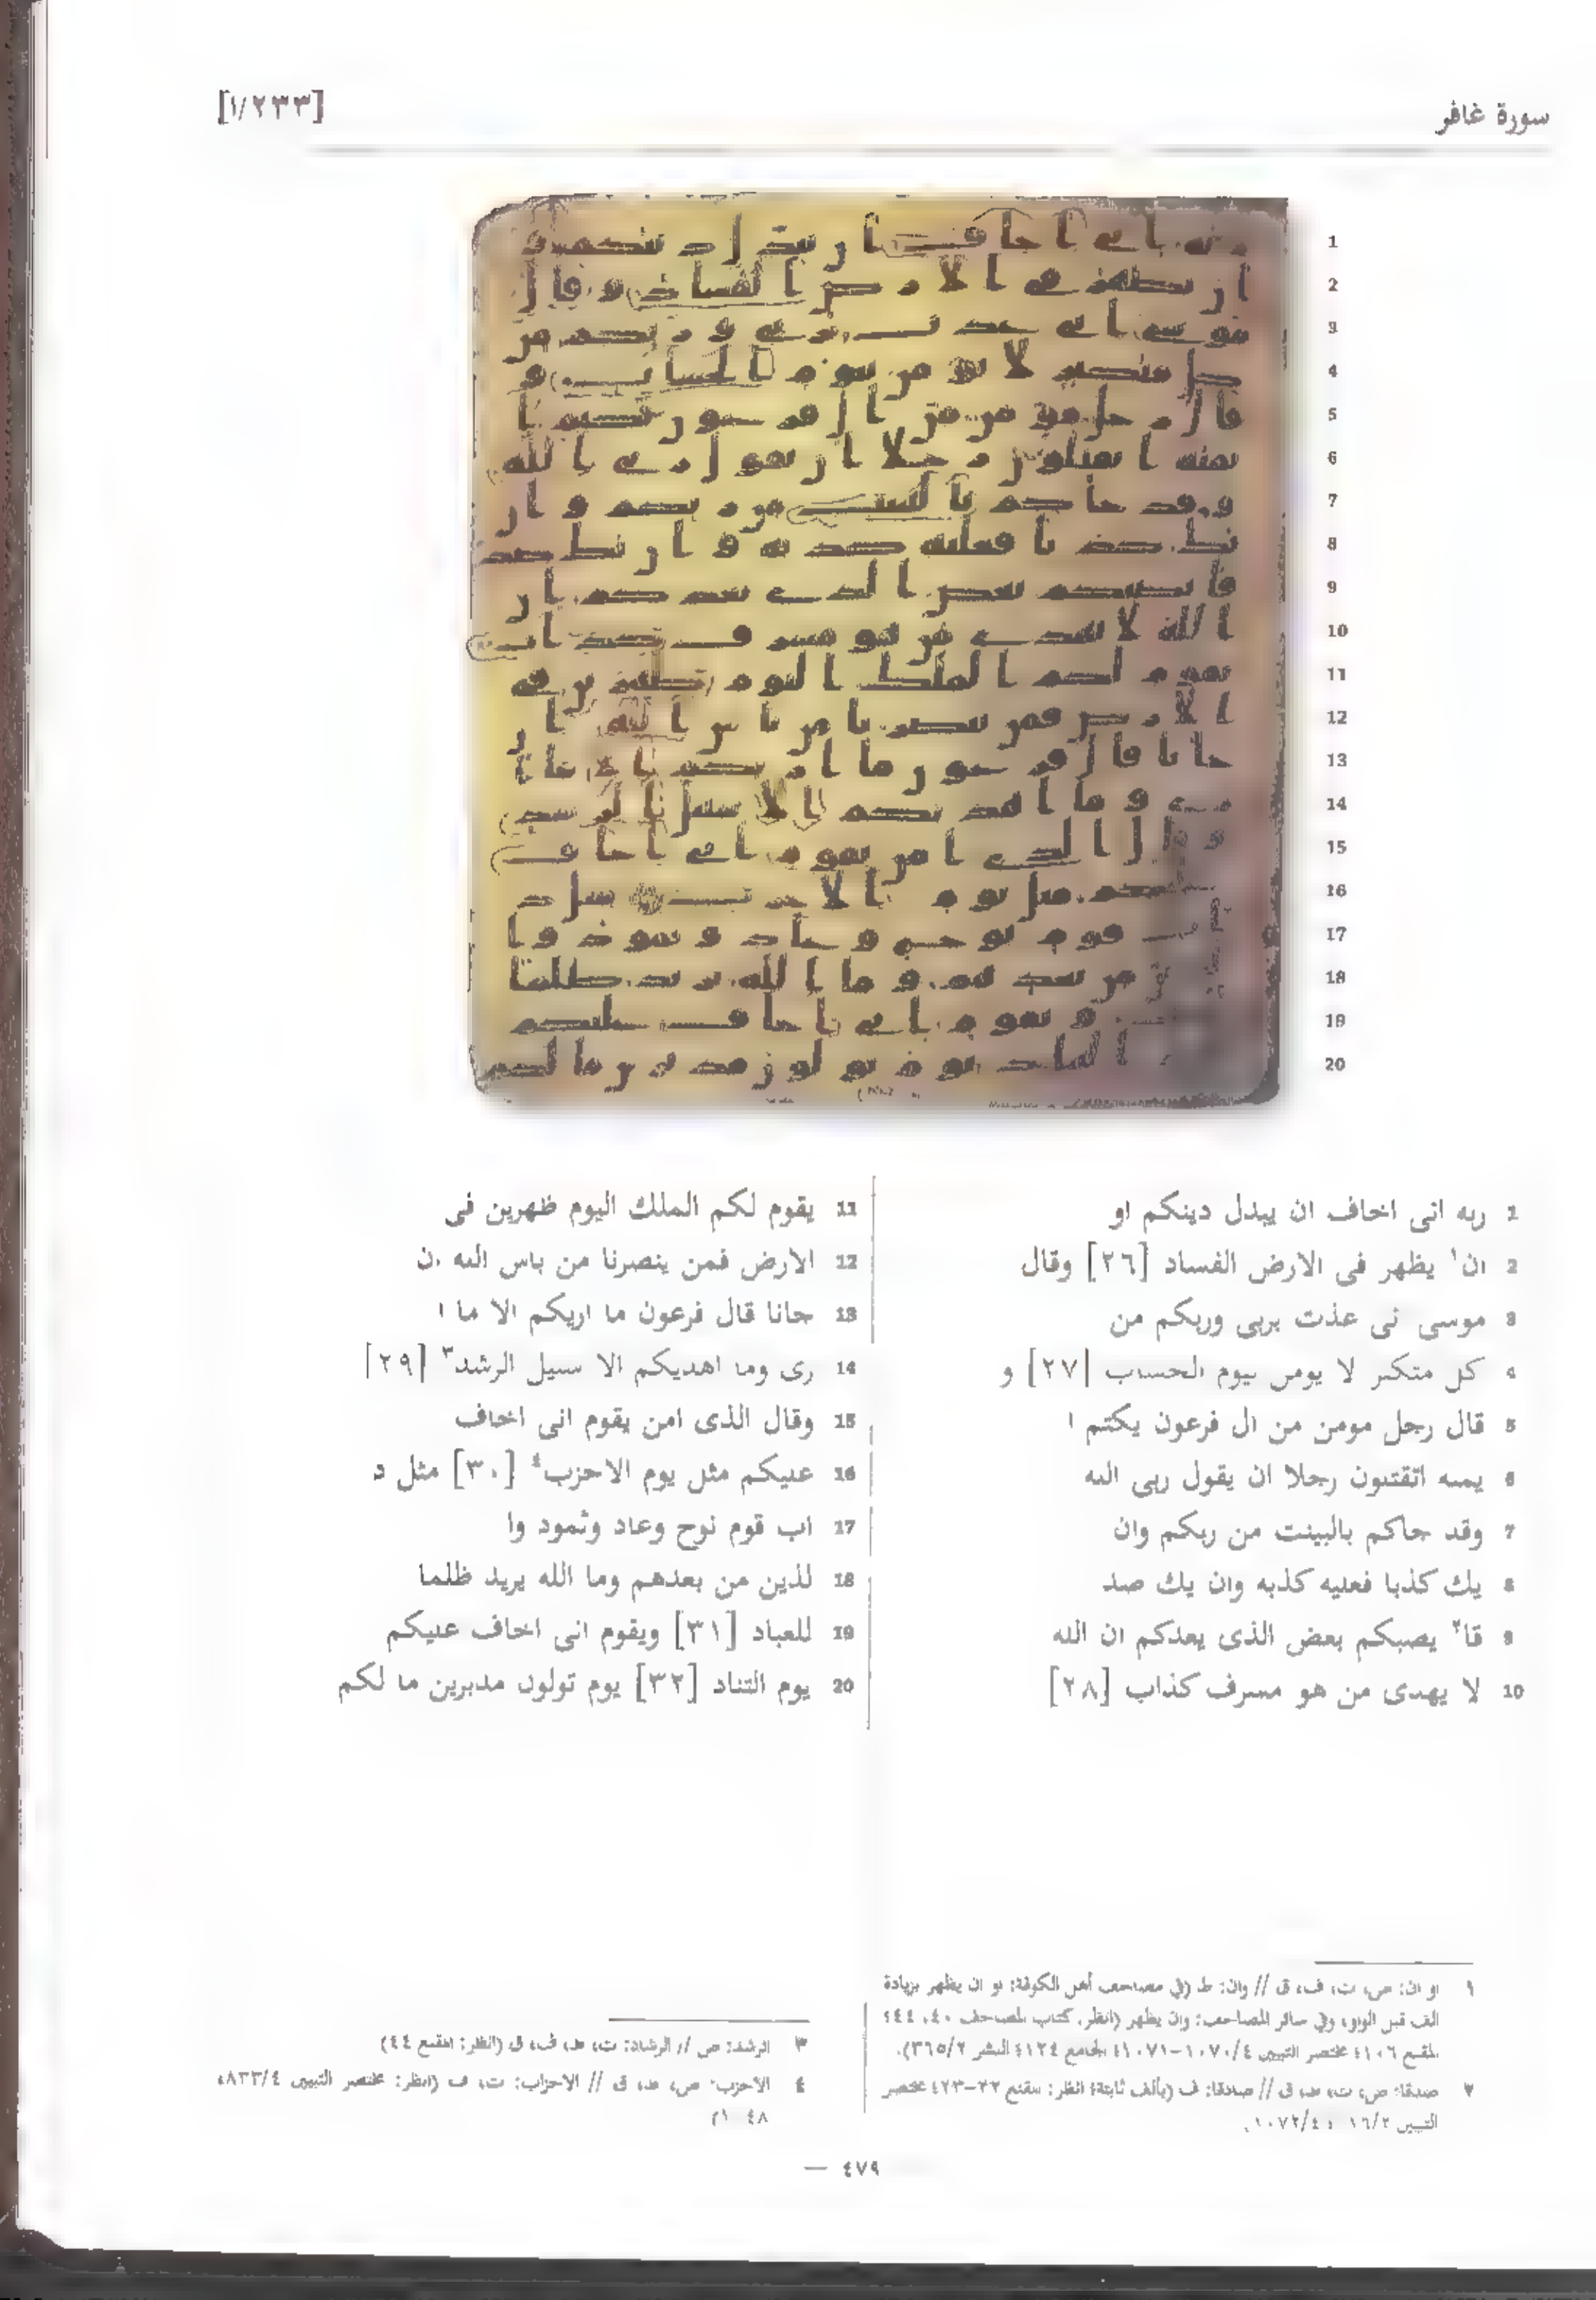 سورة غافر
[١/٢٣٣]
1 ربه انى اخاف ان يبدل دينكم او
2 ان١ يظهر فى الارض الفساد [٢٦] وقال
3 موسى نى عذت بربى وربكم من
4 كل متكبر لا يومن بيوم الحساب [٢٧] و
5 قال رجل مومن من ال فرعون يكتم ا
6 يمنه اتقتلون رجلا ان يقول ربى الله
7 وقد جاكم بالبينت من ربكم وان
8 يك كذبا فعليه كذبه وان يك صد
9 قا٢ يصبكم بعض الذى يعدكم ان الله
10 لا يهدى من هو مسرف كذاب [٢٨]
11 يقوم لكم الملك اليوم ظهرين فى
12 الارض فمن ينصرنا من باس الله ان
13 جانا قال فرعون ما اريكم الا ما ا
14 رى وما اهديكم الا سبيل الرشد٣ [٢٩]
15 وقال الذى امن يقوم انى اخاف
16 عليكم مثل يوم الاحزب٤ [٣٠] مثل د
17 اب قوم نوح وعاد وثمود وا
18 لذين من بعدهم وما الله يريد ظلما
19 للعباد [٣١] ويقوم انى اخاف عليكم
20 يوم التناد [٣٢] يوم تولون مدبرين ما لكم
١ او ان: ص، ت، ف، ق // وان: ط (في مصاحف أهل الكوفة: او ان يظهر بزيادة
الف قبل الواو، وفي سائر المصاحف: وان يظهر (انظر: كتاب المصاحف ٤٠، ٤٤؛
المقنع ١٠٦؛ مختصر التبيين ١٠٧٠/٤-١٠٧١؛ الجامع ١٢٤؛ النشر ٣٦٥/٢).
٢ صدقا: ص، ت، ط، ق // صادقا: ف (بألف ثابتة؛ انظر: المقنع ٢٢-٢٣؛ مختصر
التبيين ١٦/٢؛ ١٠٧٢/٤).
٣ الرشد: ص // الرشاد: ت، ط، ف، ق (انظر: المقنع ٤٤)
٤ الاحزب: ص، ط، ق // الاحزاب: ت، ف (انظر: مختصر التبيين ٨٣٣/٤،
٤٧٩ —